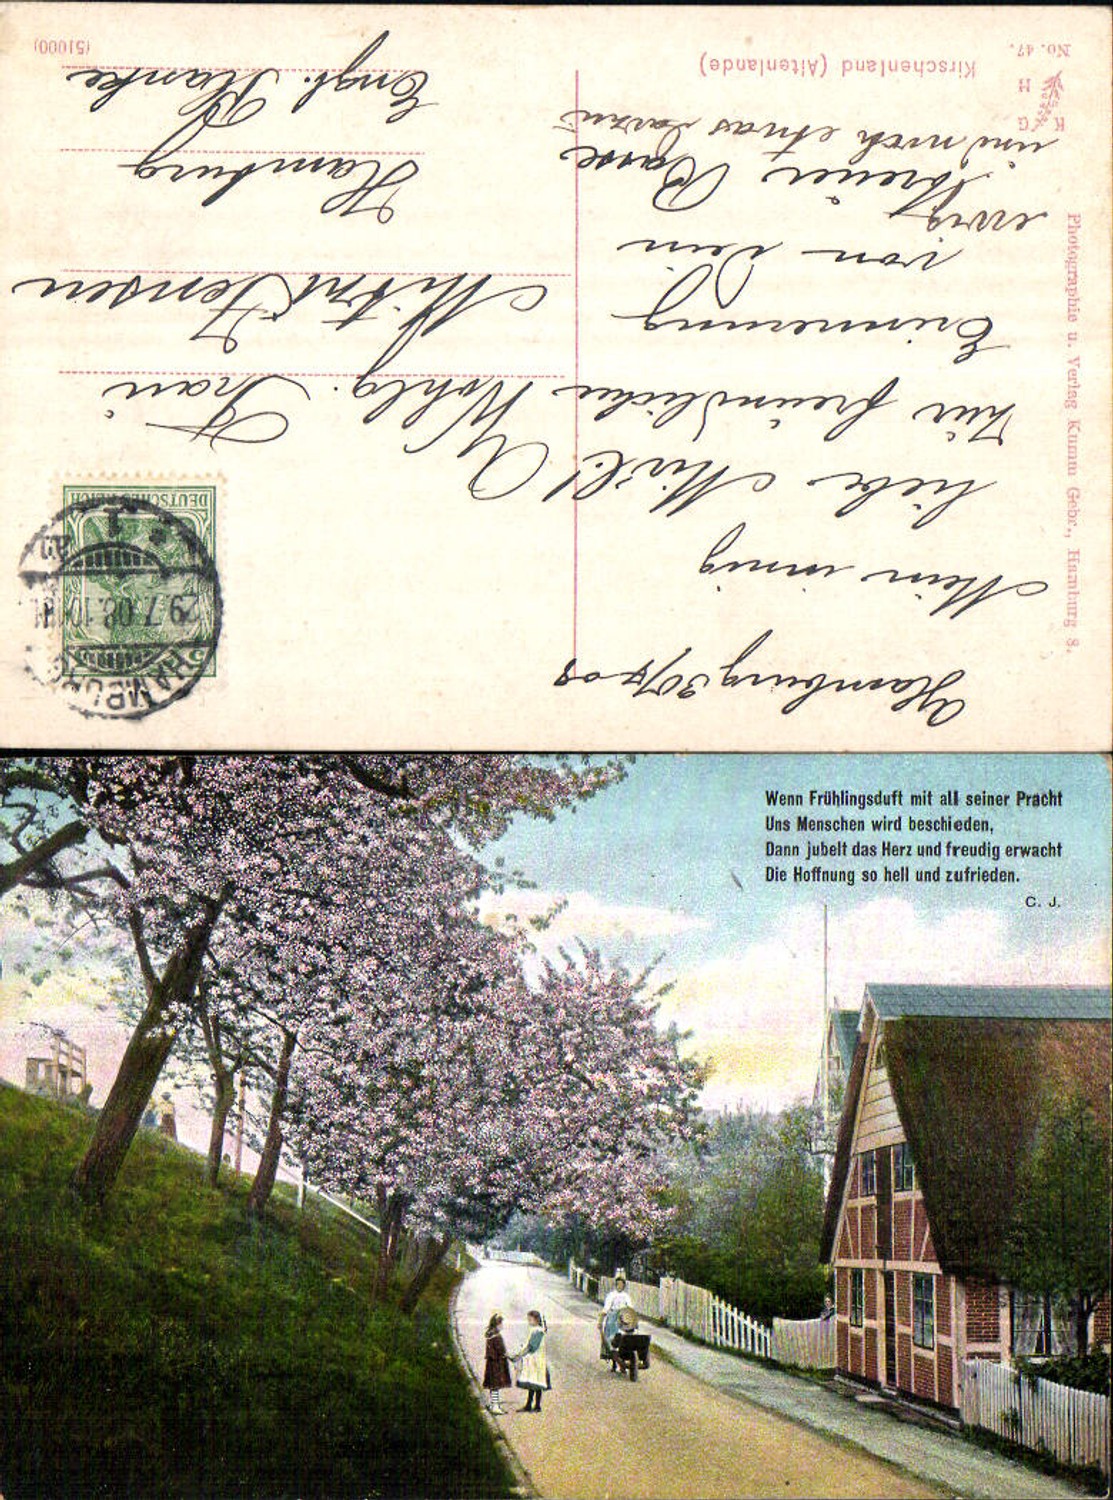 Kirschenland (Altenlande)
No. 47.
K G
H
(51000)
Photographie u. Verlag Kumm Gebr., Hamburg 8.
Hamburg 30/7 08
Mein innig
liebe Mizl!
Zur freundlichen
Erinnerung
von dein
ewig
treuer Basse
und noch etwas dazu
DEUTSCHES REICH
HAMBURG
29.7.08.10-11
1
Wohlg. Frau
Mitzi Jensen
Hamburg
Engl. Planke
Wenn Frühlingsduft mit all seiner Pracht
Uns Menschen wird beschieden,
Dann jubelt das Herz und freudig erwacht
Die Hoffnung so hell und zufrieden.
C. J.